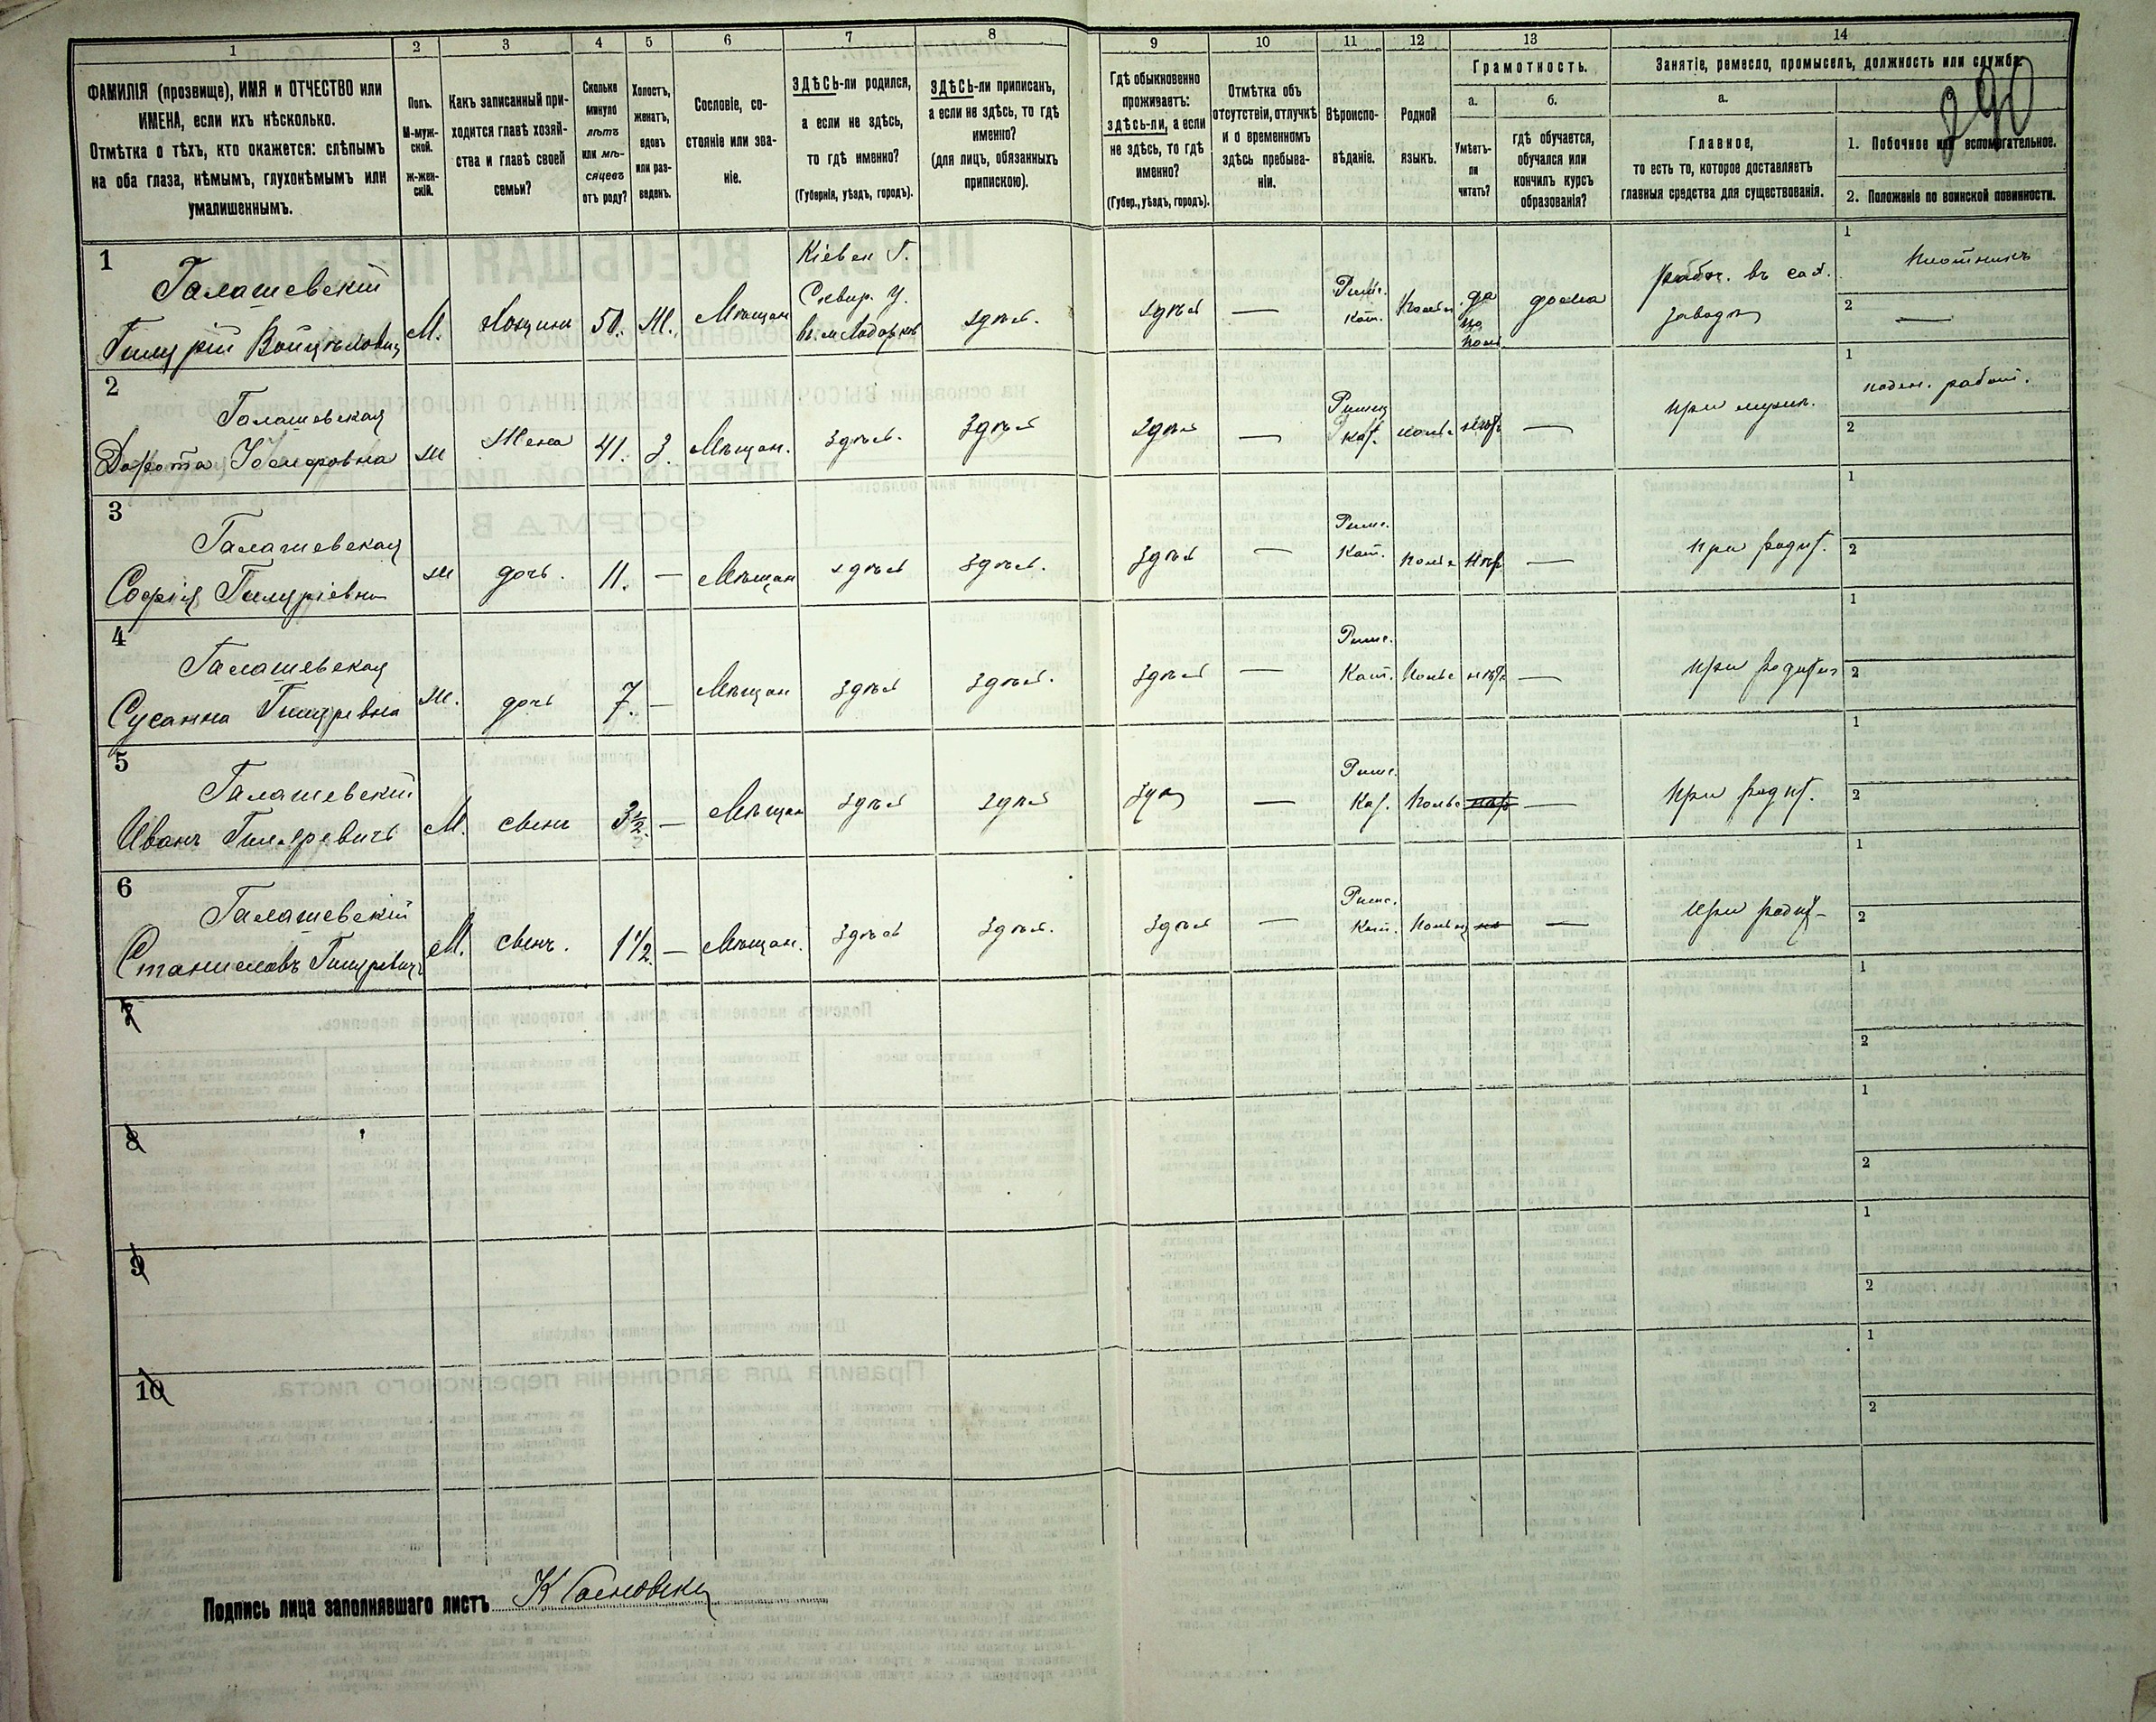 1 2 3 4 5 6 7 8 9 10 11 12 13 14
ФАМИЛІЯ (прозвище), ИМЯ и ОТЧЕСТВО или
ИМЕНА, если ихъ нѣсколько.
Отмѣтка о тѣхъ, кто окажется: слѣпымъ
на оба глаза, нѣмымъ, глухонѣмымъ или
умалишеннымъ.
Полъ.
М-муж-
ской.
ж-жен-
скій.
Какъ записанный при-
ходится главѣ хозяй-
ства и главѣ своей
семьи?
Сколько
минуло
лѣтъ
или мѣ-
сяцевъ
отъ роду?
Холостъ,
женатъ,
вдовъ
или раз-
веденъ.
Сословіе, со-
стояніе или зва-
ніе.
ЗДѢСЬ-ли родился,
а если не здѣсь,
то гдѣ именно?
(Губернія, уѣздъ, городъ).
ЗДѢСЬ-ли приписанъ,
а если не здѣсь, то гдѣ
именно?
(для лицъ, обязанныхъ
припискою).
Гдѣ обыкновенно
проживаетъ:
здѣсь-ли, а если
не здѣсь, то гдѣ
именно?
(Губер., уѣздъ, городъ).
Отмѣтка объ
отсутствіи, отлучкѣ
и о временномъ
здѣсь пребыва-
ніи.
Вѣроиспо-
вѣданіе.
Родной
языкъ.
Грамотность.
а.
Умѣетъ-
ли
читать?
б.
гдѣ обучается,
обучался или
кончилъ курсъ
образованія?
Занятіе, ремесло, промыселъ, должность или служба.
а.
Главное,
то есть то, которое доставляетъ
главныя средства для существованія.
290
1. Побочное или вспомогательное.
2. Положеніе по воинской повинности.
1
Галашевскій
Гилярій
М. 50. Ж. Мѣщан
Кіевск Г.
Сквир. У.
здѣсь. здѣсь —
Римс.
Кат.
да
по
поль
дома
работ. въ сах.
заводѣ
1 Плотникъ
2 —
2
Галашевская
Дорота Іосифовна
ж Жена 41. З. Мѣщан. здѣсь. здѣсь здѣсь —
кат. польс нѣтъ —
при мужѣ.
1 поден. работ.
2
3
Галашевская
Софія Гиляріевна
ж дочь. 11. — Мѣщан здѣсь здѣсь. здѣсь —
Римс.
Кат. польс нѣт —
при родит.
1
2
4
Галашевская
Сусанна Гиляревна
ж. дочь 7. — Мѣщан здѣсь здѣсь. здѣсь —
Римс.
Кат. польс нѣтъ —
при родител
1
2
5
Галашевскій
Иванъ Гиляревичъ
М. сынъ 3½ — Мѣщан здѣсь здѣсь —
Римс.
Кат. польс —
при родит.
1
2
6
Галашевскій
Станиславъ Гиляревичъ
М. сынъ. 1½ — Мѣщан. здѣсь здѣсь. здѣсь —
Римс.
Кат. польс —
при родит
1
2
7
1
2
8
1
2
9
1
2
10
1
2
Подпись лица заполнявшаго листъ